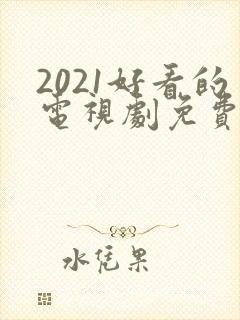 2021好看的
電視劇免費
水凭果